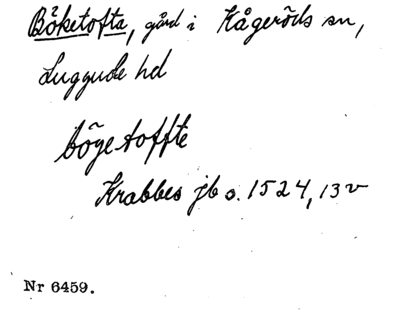 Böketofta, gård i Kågeröds sn,
Luggude hd
bögetoffte
Krabbes jb s. 1524, 13 v
Nr 6459.